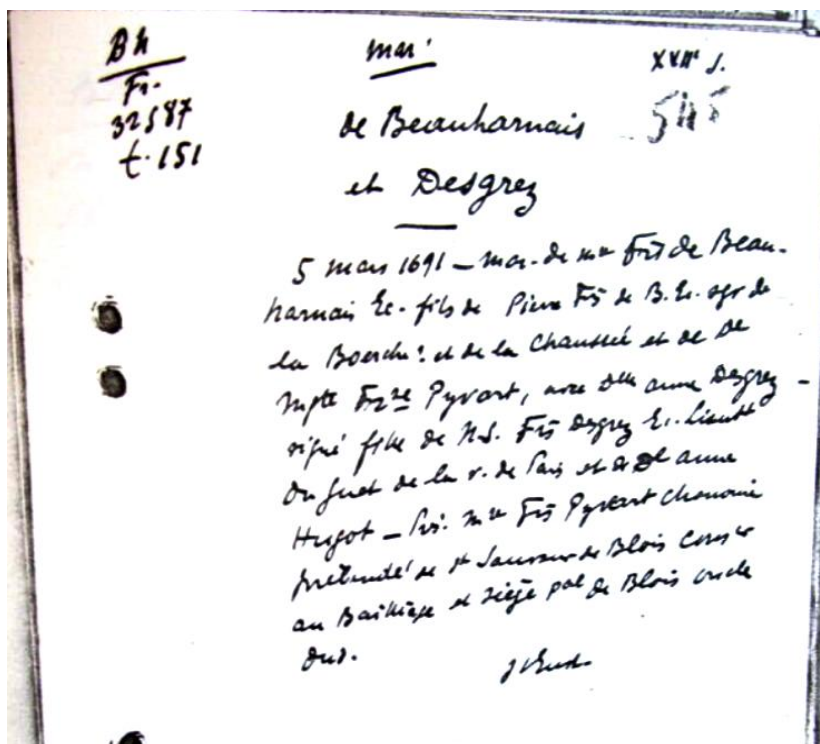 BN mar. XVIIe s.
Fr.
32587
t. 151
de Beauharnais
et Desgrez
5 mars 1691 — mar. de mre Frs de Beau-
harnais Ec. fils de Pierre Frs de B. Ec. sgr de
la Boerche? et de la Chaussée et de De
Frse Pyvart, avec Dlle anne Desgrez -
signé fille de N.S. Frs Desgrez Ec. Lieutt
du guet de la v. de Paris et de De anne
Hugot — Mre Frs Pyvart chanoine
de St Sauveur de Blois Conser
au Bailliage et siège pal de Blois oncle
dud.